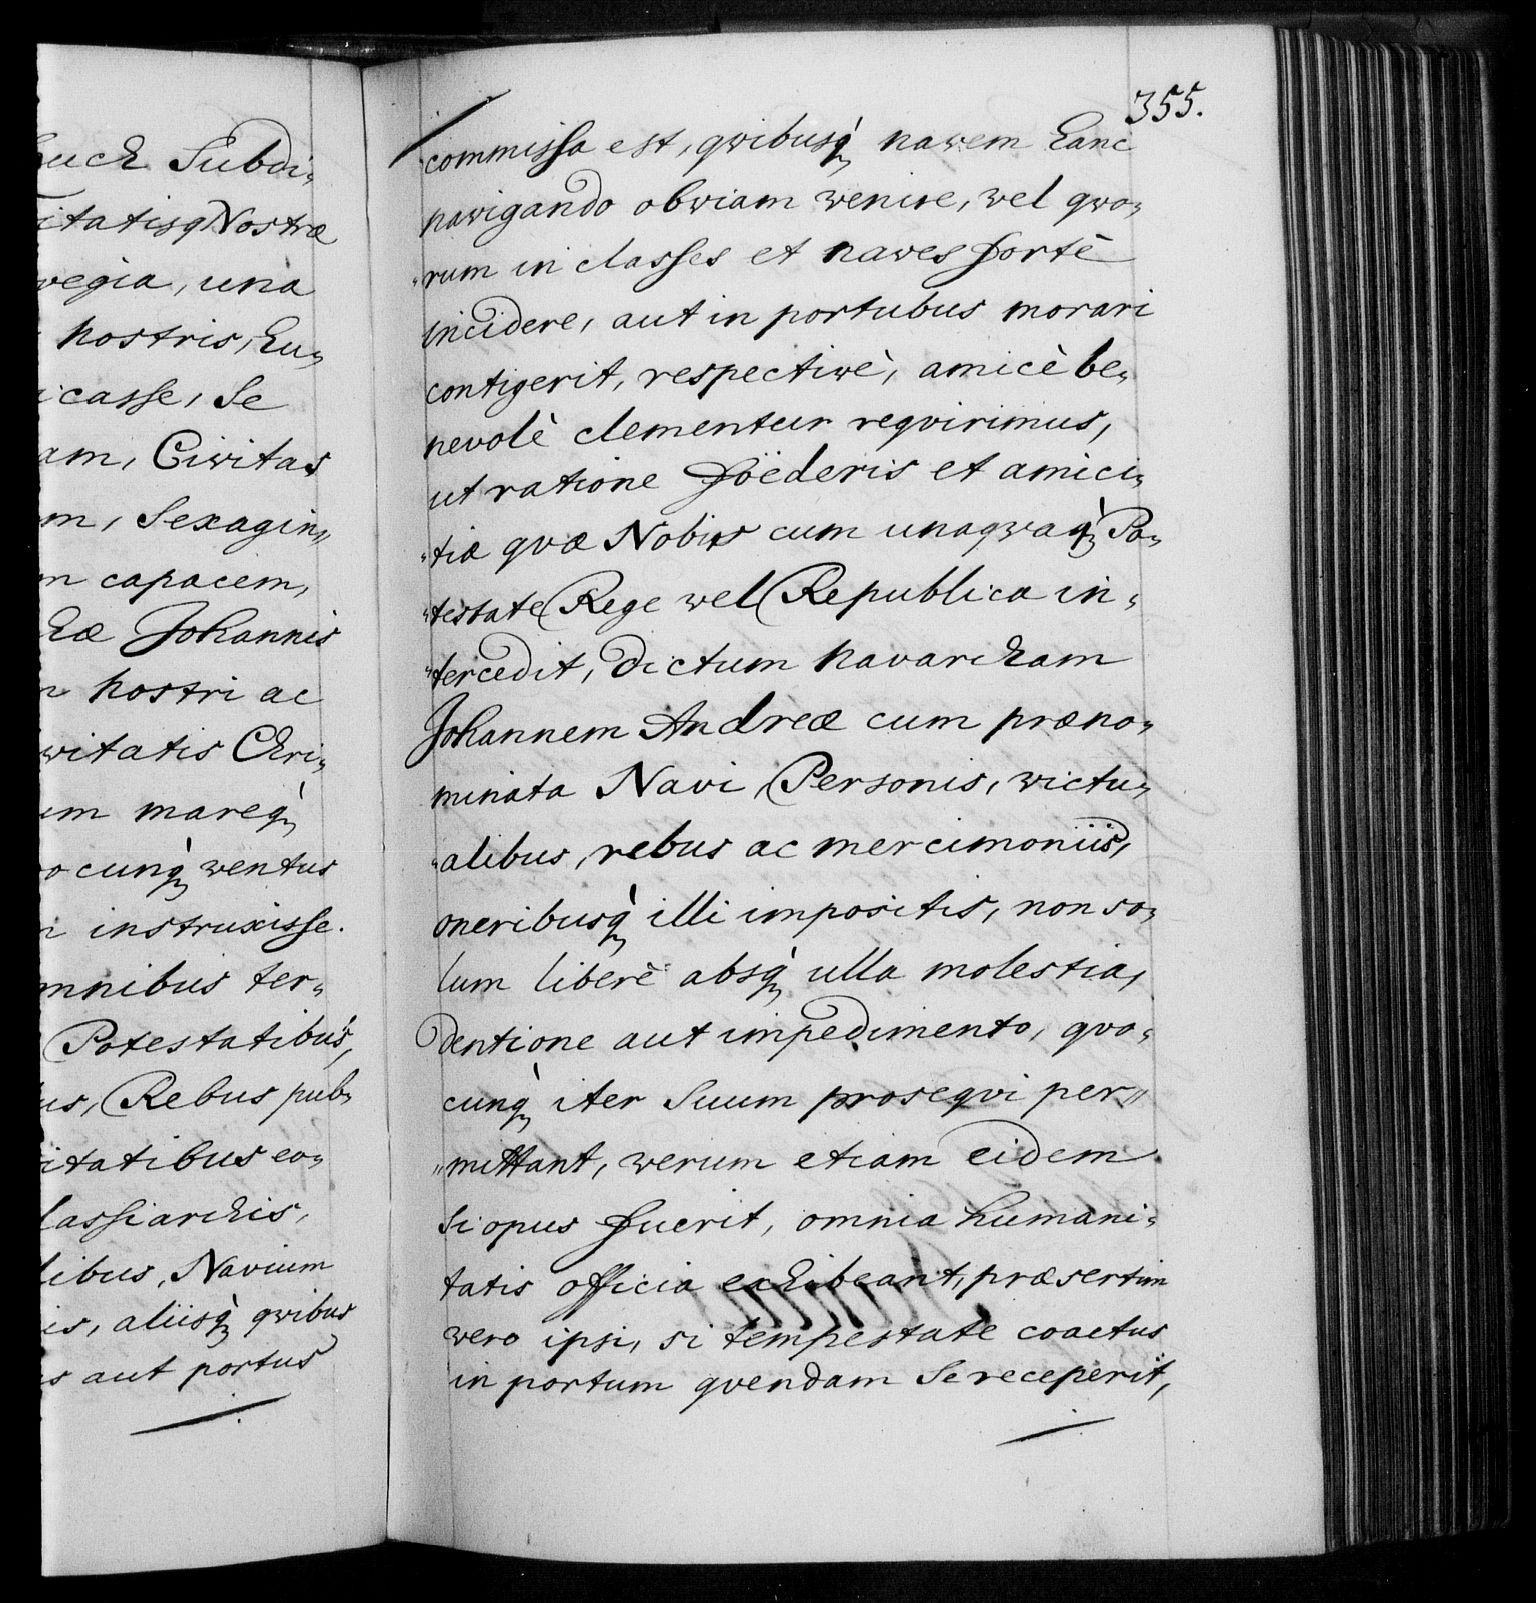 Subdi„
itatisq Nostræ
vegia, una
nostris, Eu„
icasse, Se
am, Civitas
m, Sexagin„
m capacem,
Johannis
nostri ac
witatis Chri„
um mareq̀
o cunq̀ wentus
instruxisse.
mnibus ter„
Potestatibus,
us, Rebus pub„
itatibus eo„
lassiarchis,
libus, Navium
is, aliisq̀ qwibus
s aut portus
355.
commissa est, qwibusq̀ navem hanc
nawigando obwiam wenire, wel qwo„
„rum in classes et nawes fortè
incidere, aut in portubus morari
contigerit, respectiwè, amicè be„
nevolè clementeur reqvirimus,
ut ratione foëderis et amici„
„tiæ qvæ Nobis cum unaqwaq̀ Po„
„testate Rege wel Republica in„
„tercedit, dictum navarcham
Johannem Andreæ cum præno„
minata Navi, Personis, wictu„
„alibus, rebus ac mercimoniis,
oneribusq̀ illi impositis, non so„
lum liberè absq̀ ulla molestia,
dentione aut impedimento, qvo„
cunq̀ iter Suum proseqvi per„
„mittant, werum etiam eidem
Si opus fuerit, omnia humani„
tatis officia exhibeant, præsertim
wero ipsi, si tempestate coactus
in portum qvendam Se receperit,